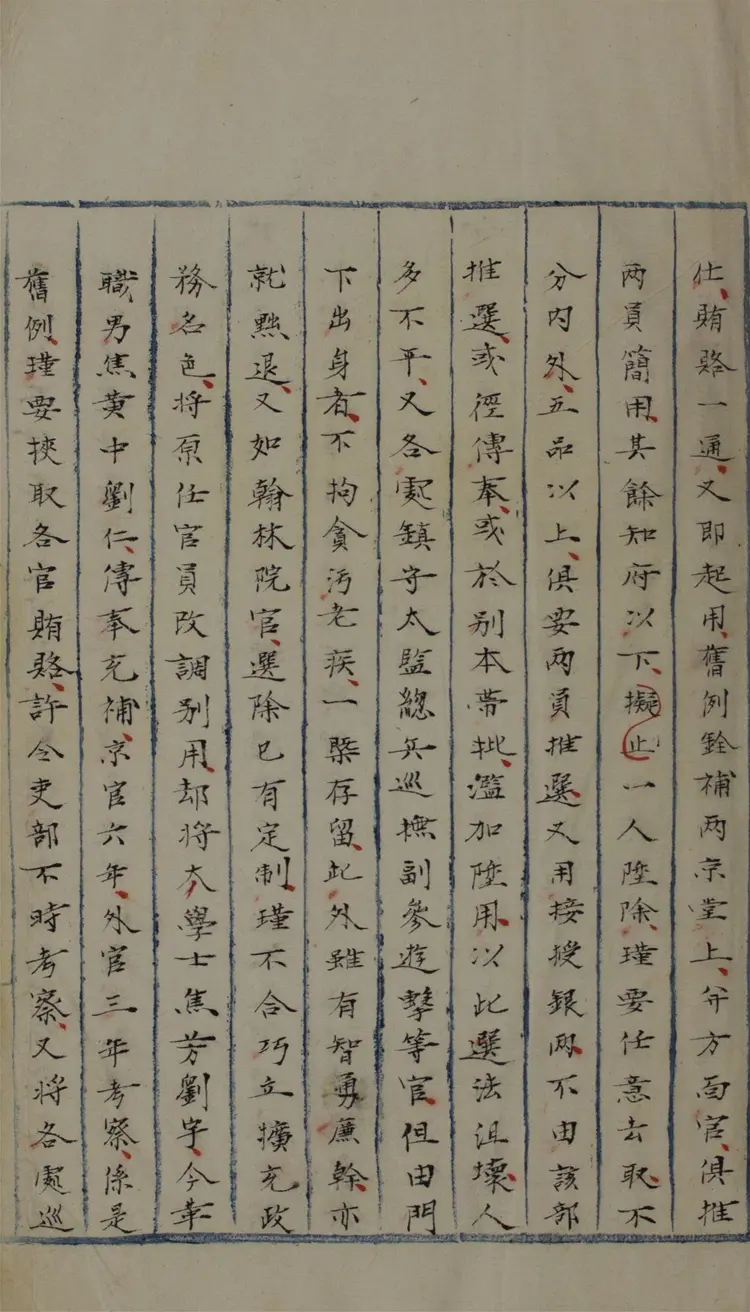 仕賄賂一通又即起用舊例銓補两京堂上并方面官俱推
两員簡用其餘知府以下擬止一人陞除瑾要任意去取不
分内外五品以上俱要两員推選又用接授銀两不由該部
推選或徑傳奉或於别本帶批濫加陞用以此選法沮壞人
多不平又各處鎮守太監總兵巡撫副參遊擊等官但由門
下出身者不拘貪污老疾一槩存留此外雖有智勇廉幹亦
就黜退又如翰林院官選除已有定制瑾不合巧立擴充政
務名色将原任官員改調别用却将大學士焦芳劉宇今革
職男焦黄中劉仁傳奉充補京官六年外官三年考察係是
舊例瑾要挾取各官賄賂許令吏部不時考察又将各處巡